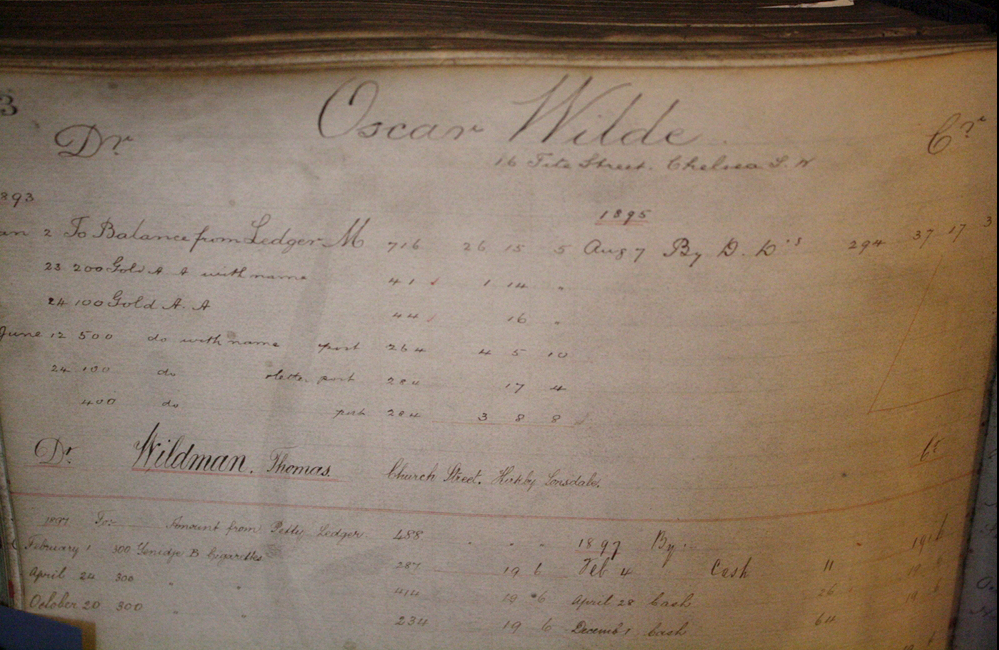 3
Oscar Wilde
Dr Cr
16 Tite Street. Chelsea S. W
893 1895
an 2 To Balance from Ledger M 716 26 15 5 Aug 7 By D. D's 294 37 17 3
23 200 Gold A A with name 41 1 14 "
24 100 Gold A. A 44 16 "
June 12 500 do with name post 264 4 5 10
24 100 do letter post 284 17 4
400 do post 284 3 8 8
Dr. Wildman. Thomas. Church Street. Kirkby Lonsdale. Cr
1897 To: Amount from Petty Ledger 488 " " " 1897 By: 19 6
February 1 300 Genidje B Cigarettes 287 19 6 Feb 4 Cash 11
April 24 300 " " 414 19 6 April 28 Cash 26
October 20 300 " " 234 19 6 Decemb 1 Cash 64